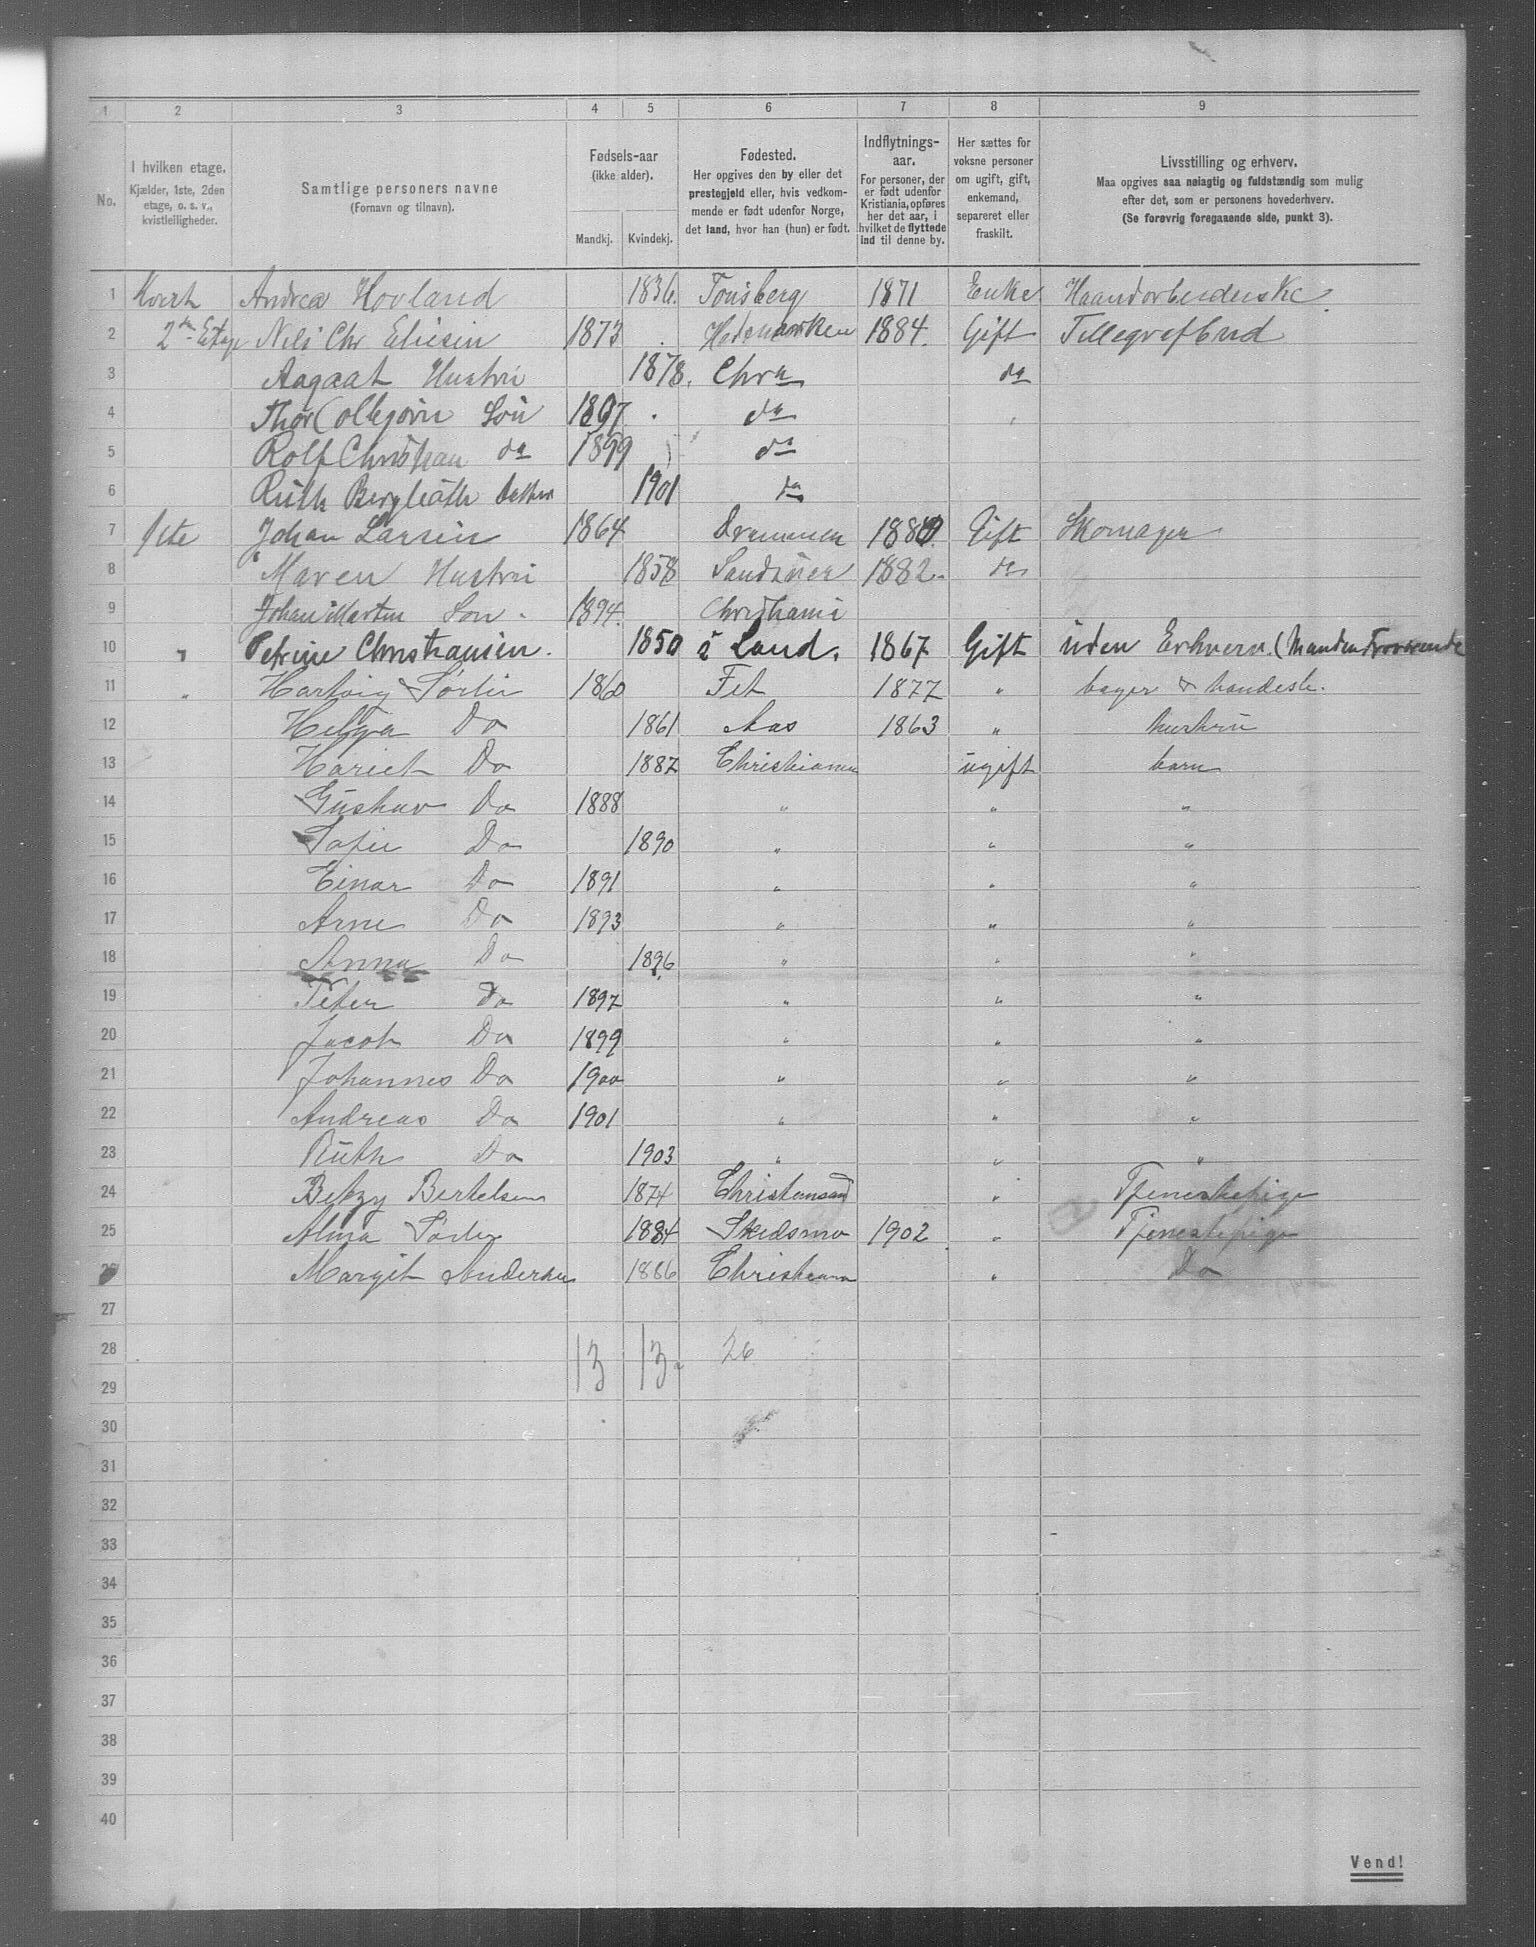 1 2 3 4 5 6 7 8 9
No.
I hvilken etage.
Kjælder, 1ste, 2den
etage, o. s. v.,
kvistleiligheder.
Samtlige personers navne
(Fornavn og tilnavn).
Fødsels-aar
(ikke alder).
Mandkj. Kvindekj.
Fødested.
Her opgives den by eller det
prestegjeld eller, hvis vedkom-
mende er født udenfor Norge,
det land, hvor han (hun) er født.
Indflytnings-
aar.
For personer, der
er født udenfor
Kristiania, opføres
her det aar, i
hvilket de flyttede
ind til denne by.
Her sættes for
voksne personer
om ugift, gift,
enkemand,
separeret eller
fraskilt.
Livsstilling og erhverv.
Maa opgives saa nøiagtig og fuldstændig som mulig
efter det, som er personens hovederhverv.
(Se forøvrig foregaaende side, punkt 3).
1 Kvist Andrea Hovland 1836. Tønsberg 1871 Enke Haandarbeiderske
2 2den Etage Nils Chr Eliesen 1873 Hedemarken 1884. Gift Tellegrafbud
3 Aagaat Hustru 1878. Chra do
4 Thor Collbjørn Søn 1897 do
5 Rolf Christian do 1899 do
6 Ruth Bergliøth Datter 1901 do
7 1ste Johan Larsen 1864 Drammen 1880. Gift Skomager
8 Maren Hustru 1858 Sandsver 1882. do
9 Johan Martin Søn. 1894. Christiania
10 " Petrine Christiansen. 1850 i Land. 1867 Gift uden Erhverv. (Manden Fraværende
11 " Hartvig Sørlie 1860 Fet 1877 " bager & handlende
12 Helga Do 1861 Aas 1863 " hustru
13 Hariet Do 1887 Christiania ugift barn
14 Gustav Do 1888 " " "
15 Sofie Do 1890 " " "
16 Einar Do 1891 " " "
17 Arne Do 1893 " " "
18 Anna Do 1896 " " "
19 Peter Do 1897 " " "
20 Jacob Do 1899 " " "
21 Johannes Do 1900 " " "
22 Andreas Do 1901 " " "
23 Ruth Do 1903 " " "
24 Betzy Bertelsen 1874 Christiansand " Tjenestepige
25 Alma Sørlie 1884 Skedsmo 1902 " Tjenestepige
26 Margit Andersen 1886 Christiania " Do
27
28 13 13 26
29
30
31
32
33
34
35
36
37
38
39
40
Vend!